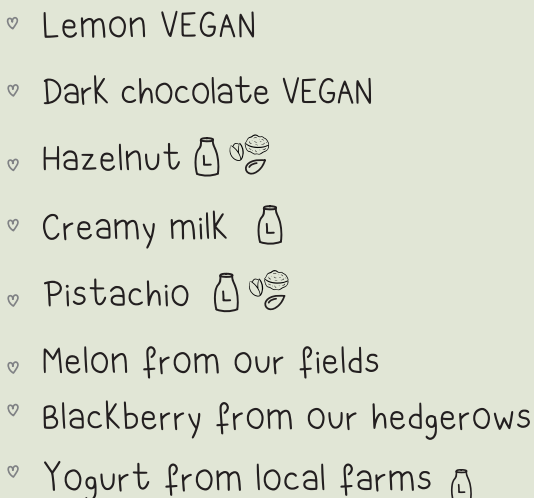 Lemon VEGAN
Dark chocolate VEGAN
Hazelnut L
Creamy milk L
Pistachio L
Melon from our fields
Blackberry from our hedgerows
Yogurt from local farms L